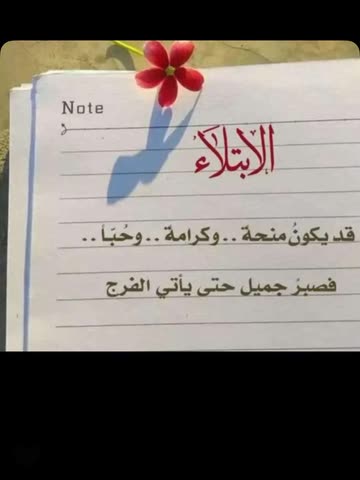 Note
الابتلاء
قد يكونُ منحة . . وكرامة . . وحُبّـاً . .
فصبرٌ جميل حتى يأتي الفرج